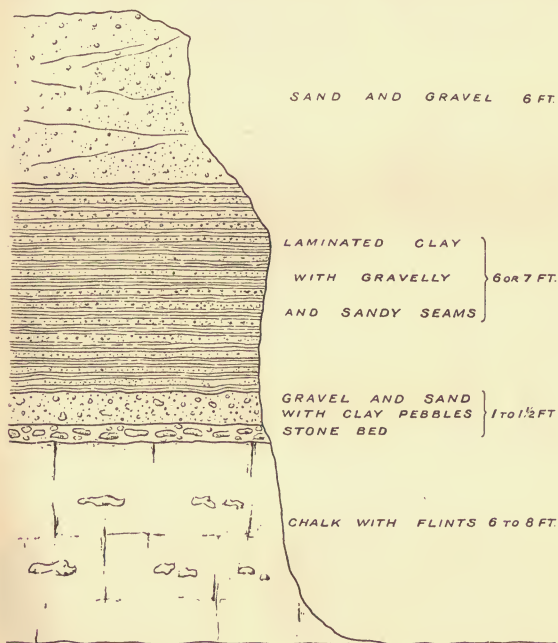 SAND AND GRAVEL 6 FT.
LAMINATED CLAY
WITH GRAVELLY 6 OR 7 FT.
AND SANDY SEAMS
GRAVEL AND SAND
WITH CLAY PEBBLES 1 TO 1½ FT
STONE BED
CHALK WITH FLINTS 6 TO 8 FT.